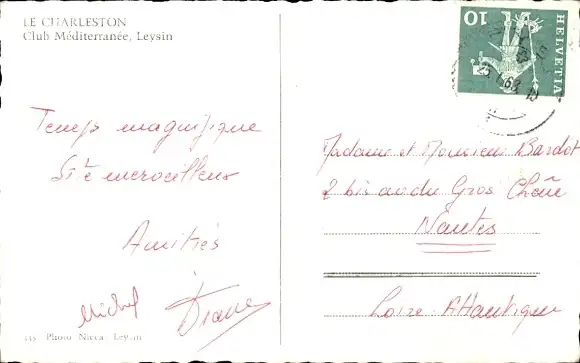 LE CHARLESTON
Club Méditerranée, Leysin
HELVETIA
10
Temps magnifique
Sité merveilleux
Amitiés
Michel
Diane
Madame et Monsieur Bardot
2 bis av du Gros Chêne
Nantes
Loire Atlantique
Photo Nicca, Leysin